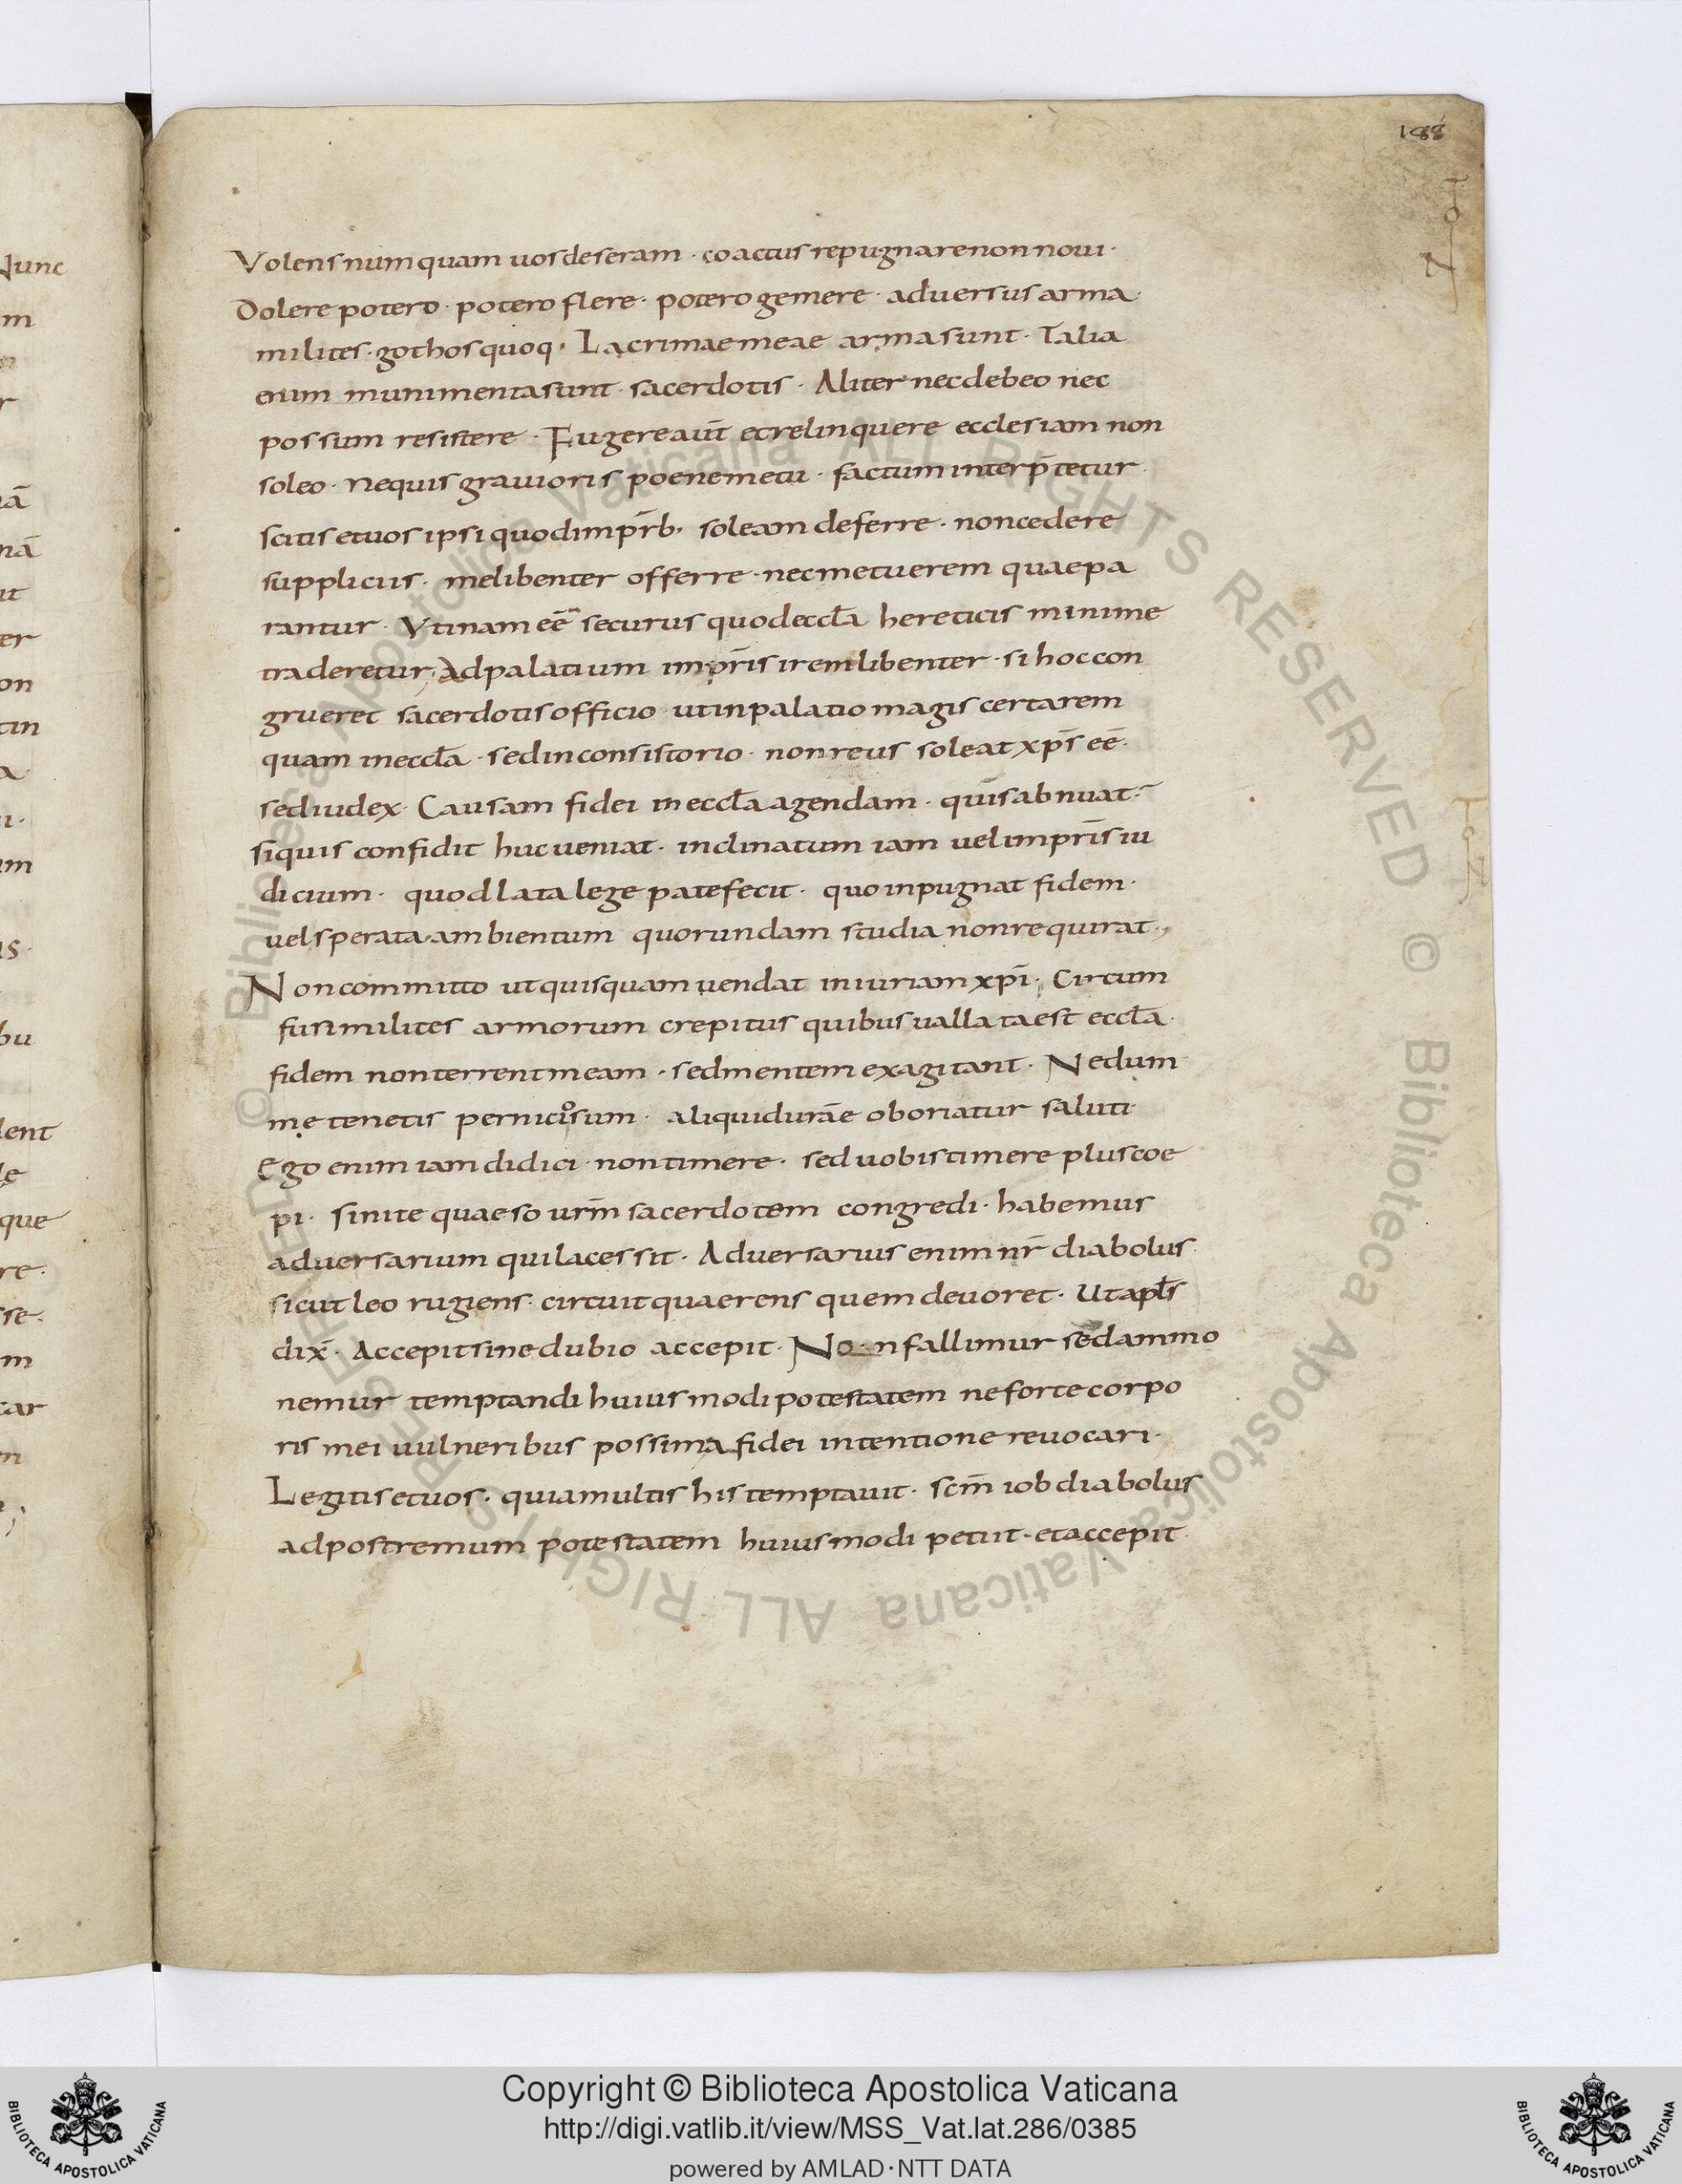 188
Volens numquam uos deseram · coactus repugnare non noui ·
Dolere potero · potero flere · potero gemere · aduersus arma ·
milites · gothos quoq · Lacrimae meae arma sunt · Talia
enim munimenta sunt · sacerdotis · Aliter nec debeo nec
possum resistere · Fugere aut̄ et relinquere ecclesiam non
soleo · Nequis grauioris poene metu · factum interp̄tetur ·
scitis et uos ipsi quod impr̄b · soleam deferre · non cedere
suppliciis · me libenter offerre · nec metuerem quae pa
rantur · Vtinam eē securus quod eccl̄a hereticis minime
traderetur · Ad palatium impr̄is irem libenter · si hoc con
grueret sacerdotis officio · ut in palatio magis certarem
quam in eccl̄a · sed in consistorio · non reus soleat xp̄s eē ·
sed iudex · Causam fidei in eccl̄a agendam · quis abnuat ·
siquis confidit huc ueniat · inclinatum iam uel impr̄is iu
dicium · quod lata lege patefecit · quo inpugnat fidem ·
uel sperata ambientum quorundam studia non requirat ·,
Non committo ut quisquam uendat iniuriam xp̄i · Circum
fusi milites armorum crepitus quibus uallata est eccl̄a ·
fidem non terrent meam · sed mentem exagitant · Nedum
me tenetis perniciosum · aliquid urāe oboriatur saluti ·
Ego enim iam didici · non timere · sed uobis timere plus coe
pi · sinite quaeso urm̄ sacerdotem congredi · habemus
aduersarium qui lacessit · Aduersarius enim nr̄ diabolus ·
sicut leo rugiens · circuit quaerens quem deuoret · Ut apl̄s
dix̄ · Accepit sine dubio accepit · Non fallimur sed ammo
nemur temptandi huius modi potestatem ne forte corpo
ris mei uulneribus possim a fidei intentione reuocari ·
Legitis et uos · quia multis his temptauit · scm̄ iob diabolus
ad postremum potestatem huiusmodi petiit · et accepit ·
Copyright © Biblioteca Apostolica Vaticana
http://digi.vatlib.it/view/MSS_Vat.lat.286/0385
powered by AMLAD·NTT DATA